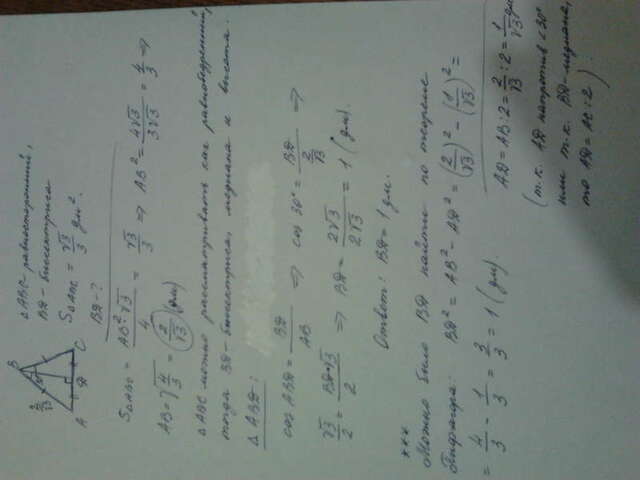 △ABC - равносторонний,
BD - биссектриса
S△ABC = √3/3 дм².
BD - ?
B
2/√3
A D C
S△ABC = AB²·√3/4 = √3/3 ⇒ AB² = 4√3/3√3 = 4/3 ⇒
AB = √(4/3) = (2/√3) (дм)
△ABC можно рассматривать как равнобедренный,
тогда BD - биссектриса, медиана и высота.
△ABD:
cos ABD = BD/AB ⇒ cos 30° = BD/(2/√3) ⇒
√3/2 = BD·√3/2 ⇒ BD = 2√3/2√3 = 1 (дм).
Ответ: BD = 1 дм.
***
Можно было BD найти по теореме
Пифагора: BD² = AB² - AD² = (2/√3)² - (1/√3)² =
= 4/3 - 1/3 = 3/3 = 1 (дм).
AD = AB:2 = 2/√3 : 2 = 1/√3 дм
(т.к. AD напротив <30°
или т.к. BD - медиана,
то AD = AC:2).